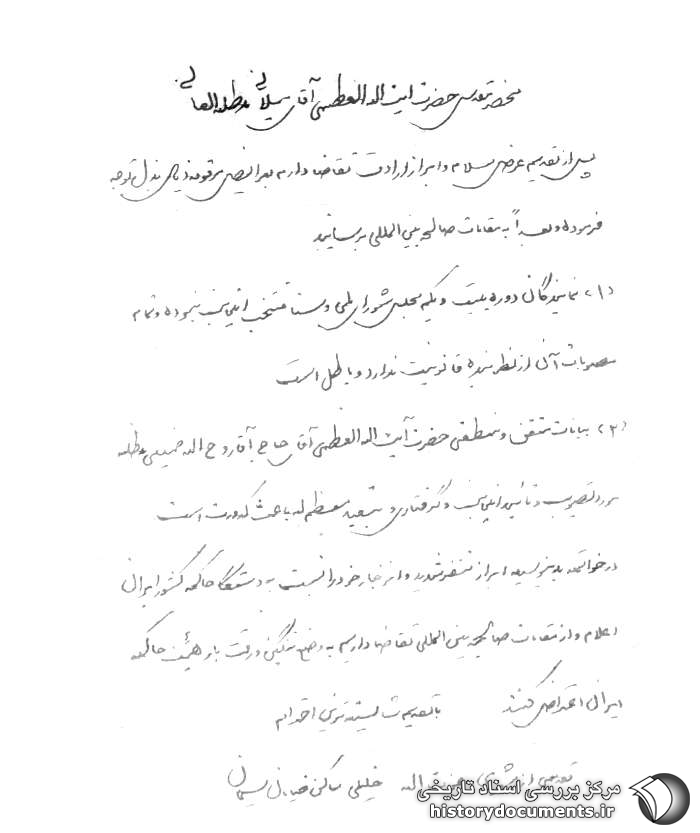 محضر مقدس حضرت آیت اله العظمی آقای میلانی مدظله العالی
پس از تقدیم عرض سلام و ابراز ارادت تقاضا دارم بعرایض مرقومه ذیل بذل توجه
فرموده و بعداً به مقامات صالحه بین المللی برسانید
(۱) نمایندگان دوره بیست و یکم مجلس شورای ملی و سنا منتخب اینجانب نبوده و تمام
مصوبات آن از نظر بنده قانونیت ندارد و باطل است
(۲) بیانات متقن و منطقی حضرت آیت اله العظمی آقای حاج آقا روح اله خمینی مدظله
مورد تصویب و تأئید اینجانب و گرفتاری و تبعید معظم له باعث کدورت است
در خواتمه بدینوسیله ابراز تنفر شدید و انزجار خود را نسبت به دستگاه حاکمه کشور ایران
اعلام و از مقامات صالحه بین المللی تقاضا داریم به وضع ننگین و رقت بار هیئت حاکمه
ایران اعتراض کنند با تقدیم شایسته ترین احترام
تقدیمی از اله خلیلی ساکن خیابان
مرکز بررسی اسناد تاریخی
historydocuments.ir